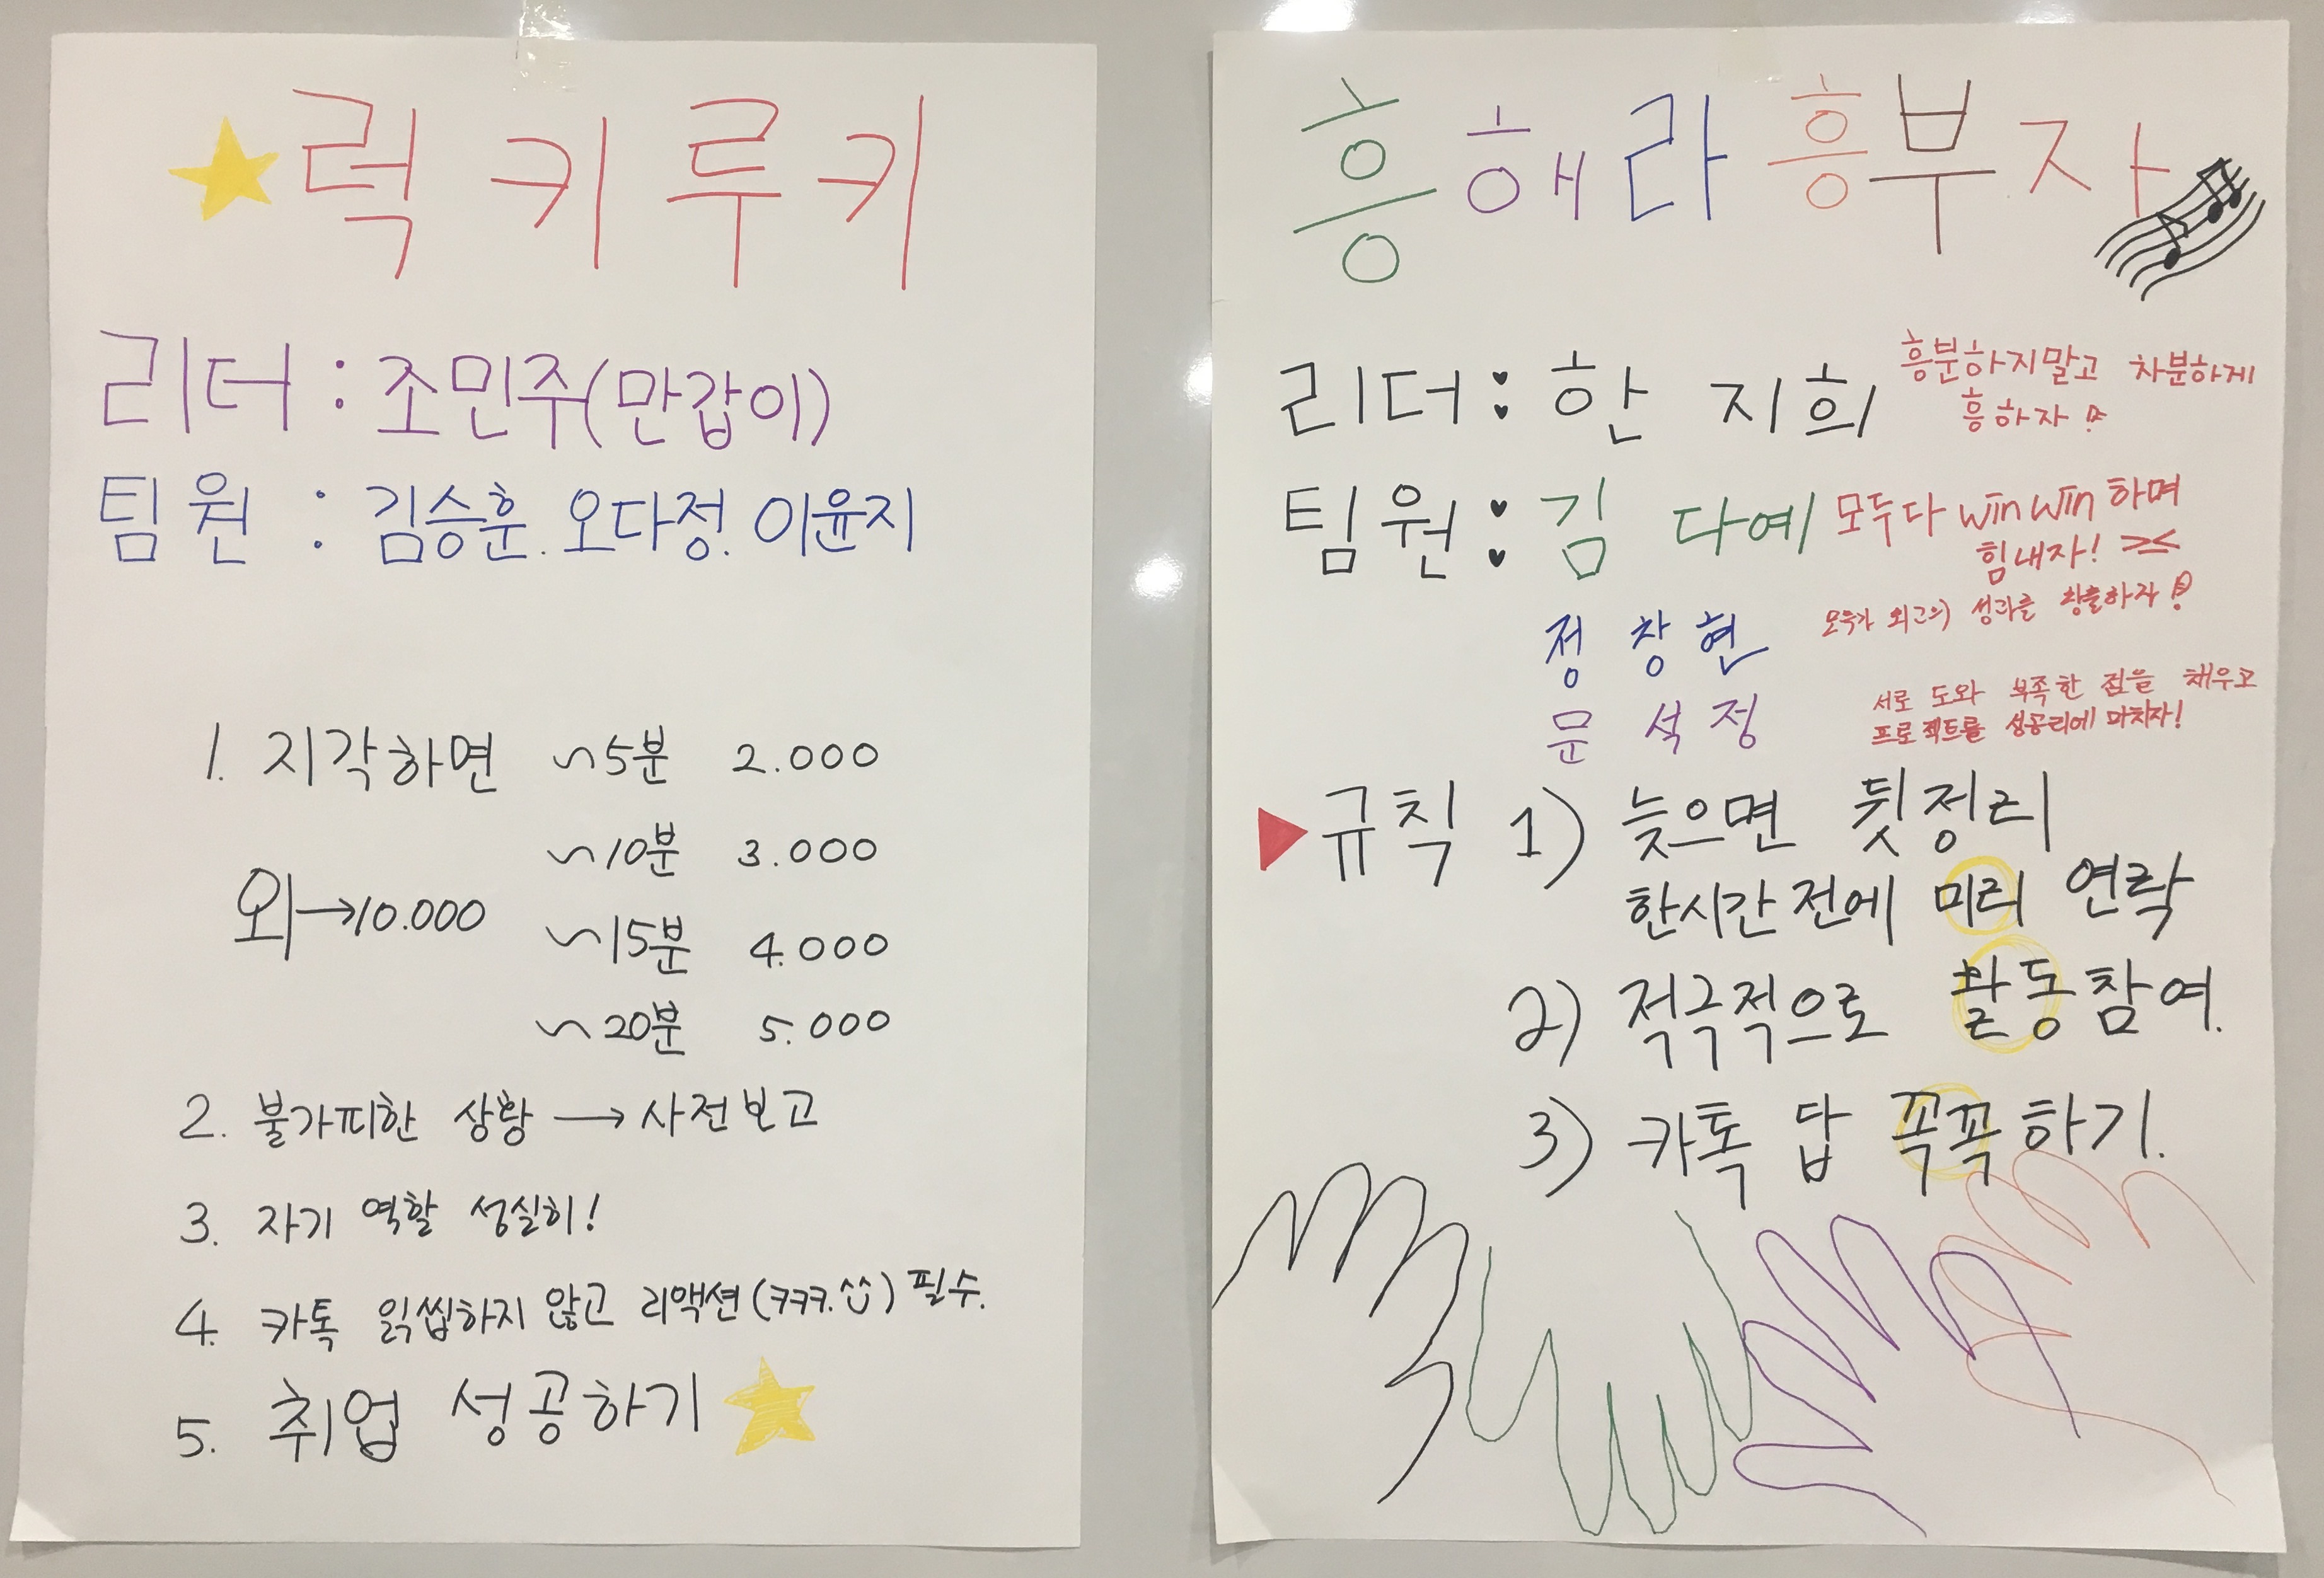 럭키루키
리더 : 조민주(만갑이)
팀원 : 김승훈. 오다정. 이윤지
1. 지각하면 ~5분 2.000
~10분 3.000
외→10.000
~15분 4.000
~20분 5.000
2. 불가피한 상황 → 사전보고
3. 자기 역할 성실히!
4. 카톡 읽씹하지 않고 리액션(ㅋㅋㅋ.^^) 필수.
5. 취업 성공하기
흥해라흥부자
리더: 한지희 흥분하지말고 차분하게
흥하자!
팀원: 김다예 모두다 win win 하며
힘내자! ><
정창현 모두가 최고의 성과를 창출하자!
문석정 서로 도와 부족한 점을 채우고
프로젝트를 성공리에 마치자!
▶규칙 1) 늦으면 뒷정리
한시간 전에 미리 연락
2) 적극적으로 활동참여.
3) 카톡 답 꼭꼭하기.